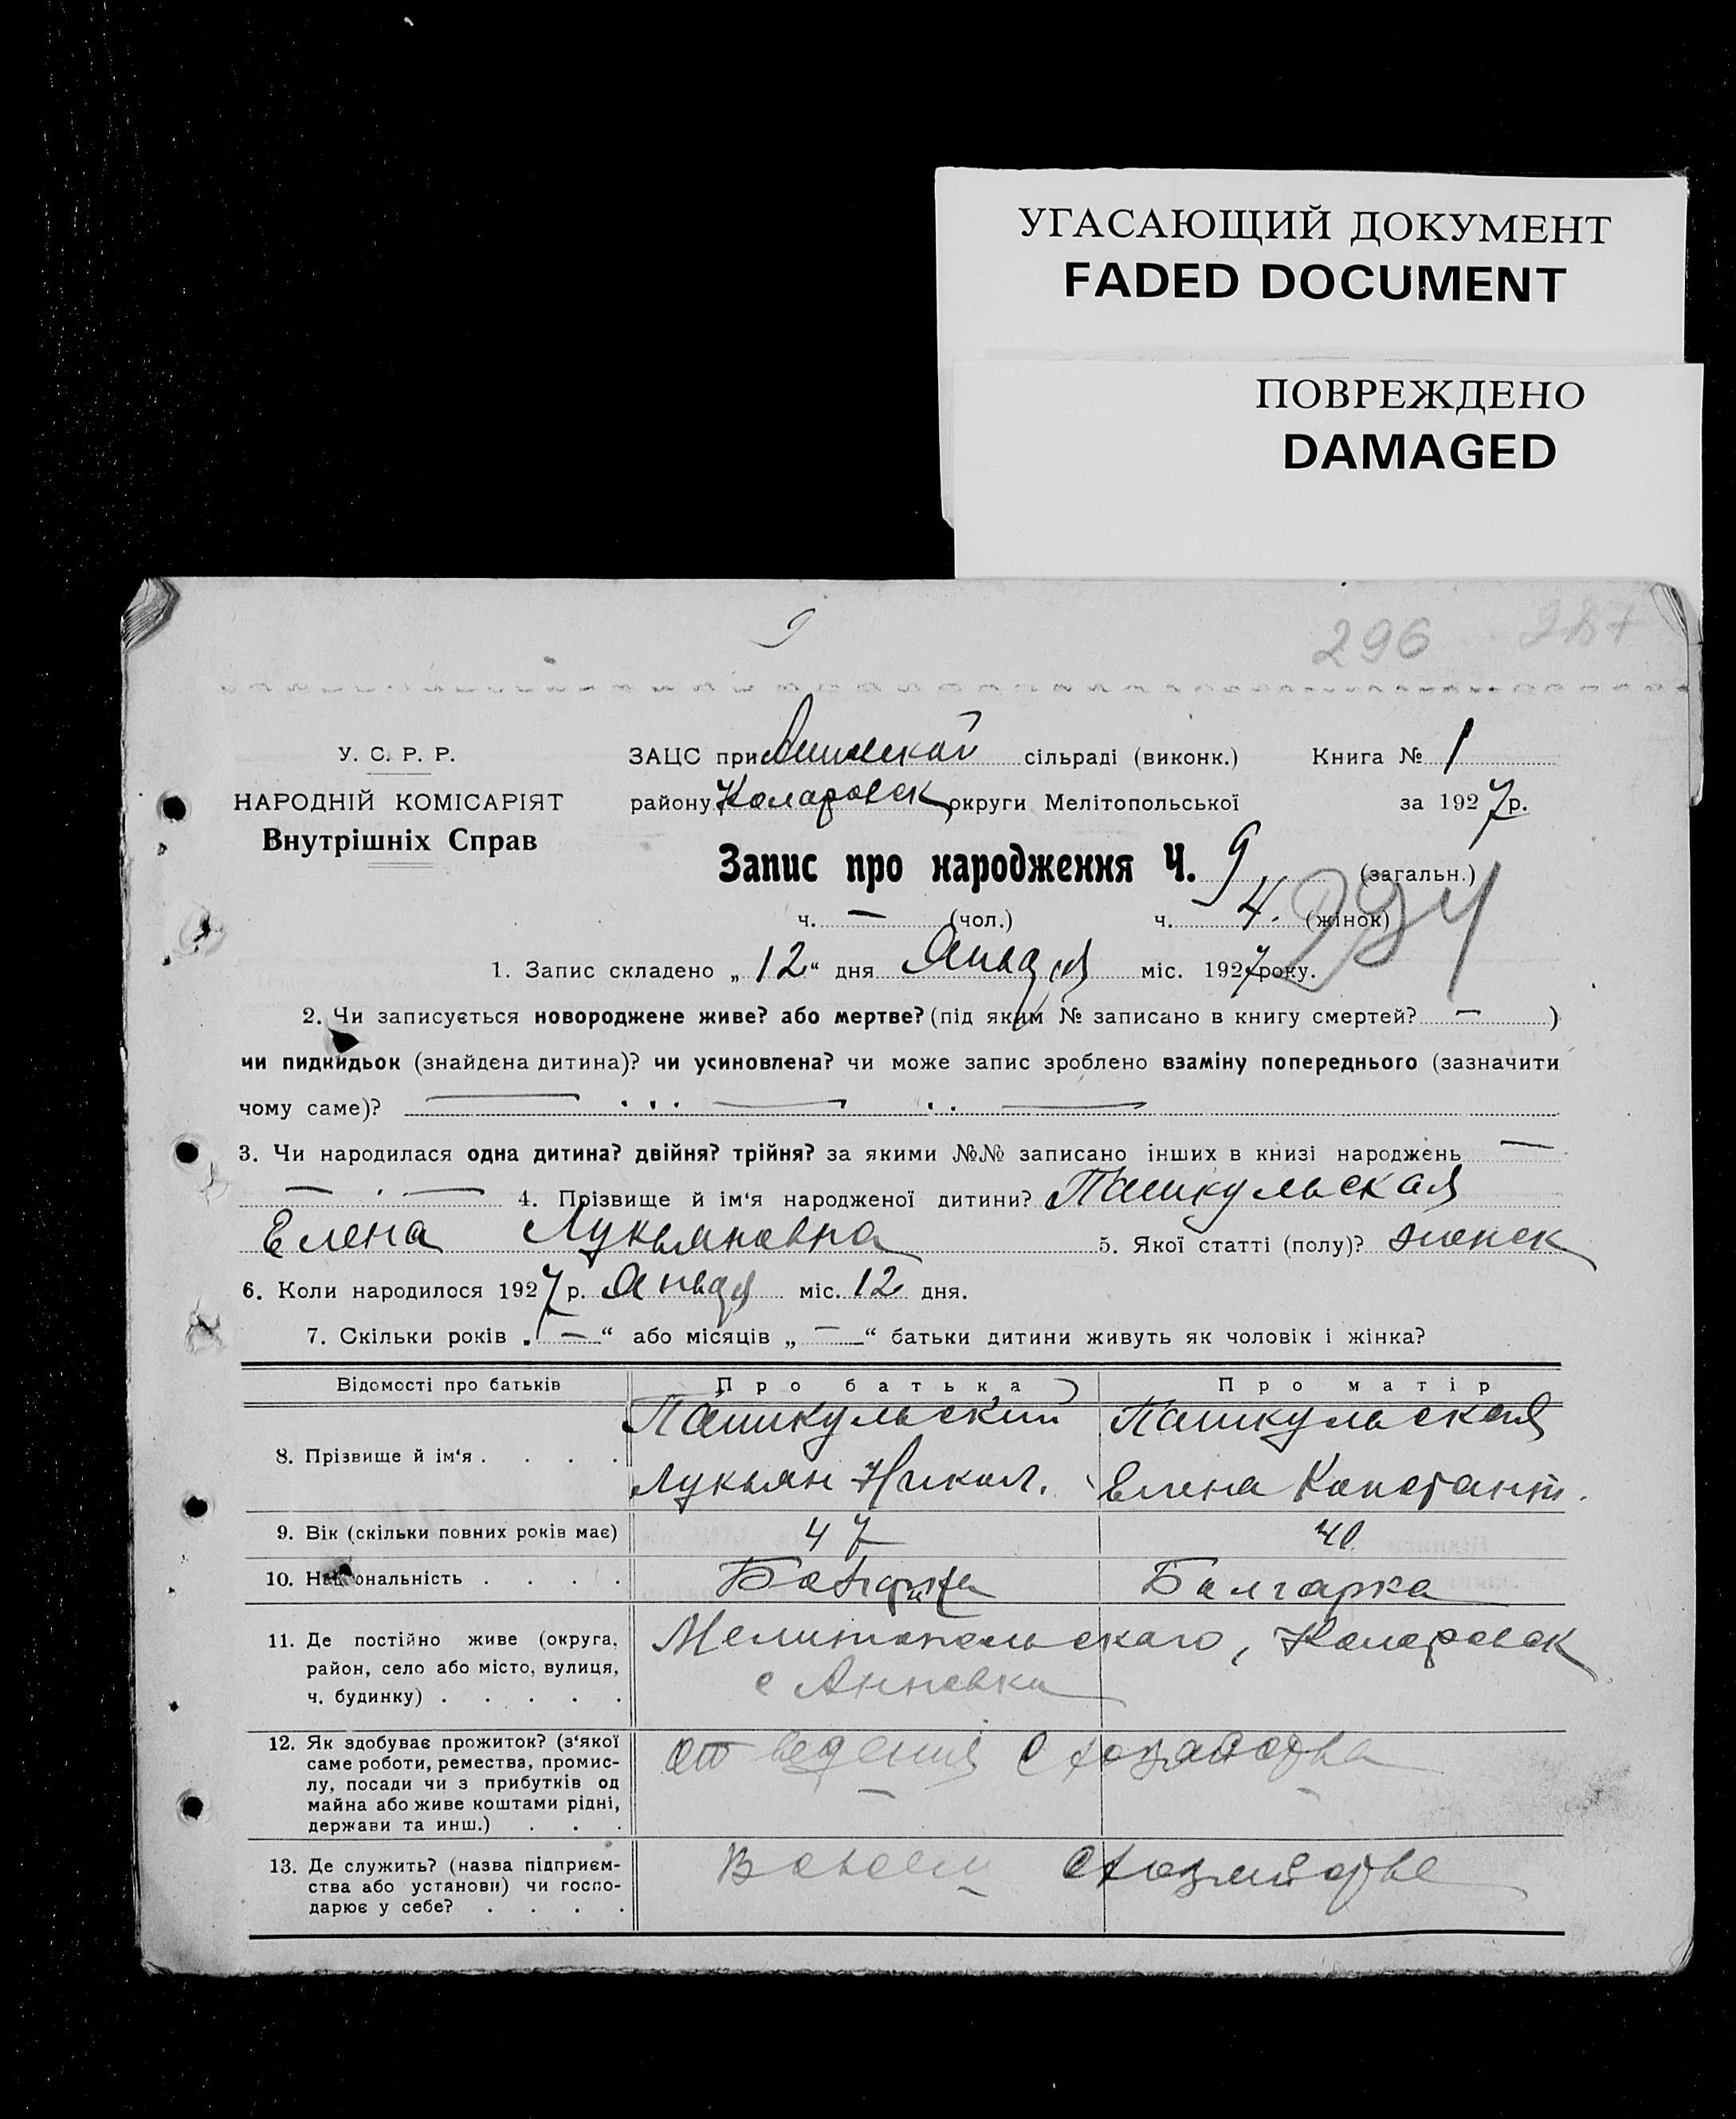 УГАСАЮЩИЙ ДОКУМЕНТ
FADED DOCUMENT
ПОВРЕЖДЕНО
DAMAGED
9
296
У. С. Р. Р.
НАРОДНІЙ КОМІСАРІЯТ
Внутрішніх Справ
ЗАЦС при сільраді (виконк.) Книга № 1
району Коларовск округи Мелітопольської за 1927р.
Запис про народження Ч. 9 (загальн.)
ч. — (чол.) ч. 4. (жінок)
1. Запис складено „12“ дня Января міс. 1927 року.
2. Чи записується новороджене живе? або мертве? (під яким № записано в книгу смертей? — )
чи пидкидьок (знайдена дитина)? чи усиновлена? чи може запис зроблено взаміну попереднього (зазначити
чому саме)?
3. Чи народилася одна дитина? двійня? трійня? за якими №№ записано інших в книзі народжень —
4. Прізвище й ім‘я народженої дитини? Пашкульская
Елена Лукьяновна 5. Якої статті (полу)? женск
6. Коли народилося 1927 р. Января міс. 12 дня.
7. Скільки років „—“ або місяців „—“ батьки дитини живуть як чоловік і жінка?
Відомості про батьків Про батька Про матір
8. Прізвище й ім‘я . . . . Пашкульский Пашкульская
Лукьян Никол. Елена Константн.
9. Вік (скільки повних років має) 47 40
10. Національність . . . . Болгарка
11. Де постійно живе (округа, район, село або місто, вулиця, ч. будинку) . . . . . Мелитопольскаго, Коларовск
с Анновка
12. Як здобуває прожиток? (з‘якої
саме роботи, ремества, промис-
лу, посади чи з прибутків од
майна або живе коштами рідні,
держави та инш.) . . . от ведения с хозяйства
13. Де служить? (назва підприєм-
ства або установи) чи госпо-
дарює у себе? . . . . В своем с хозяйстве